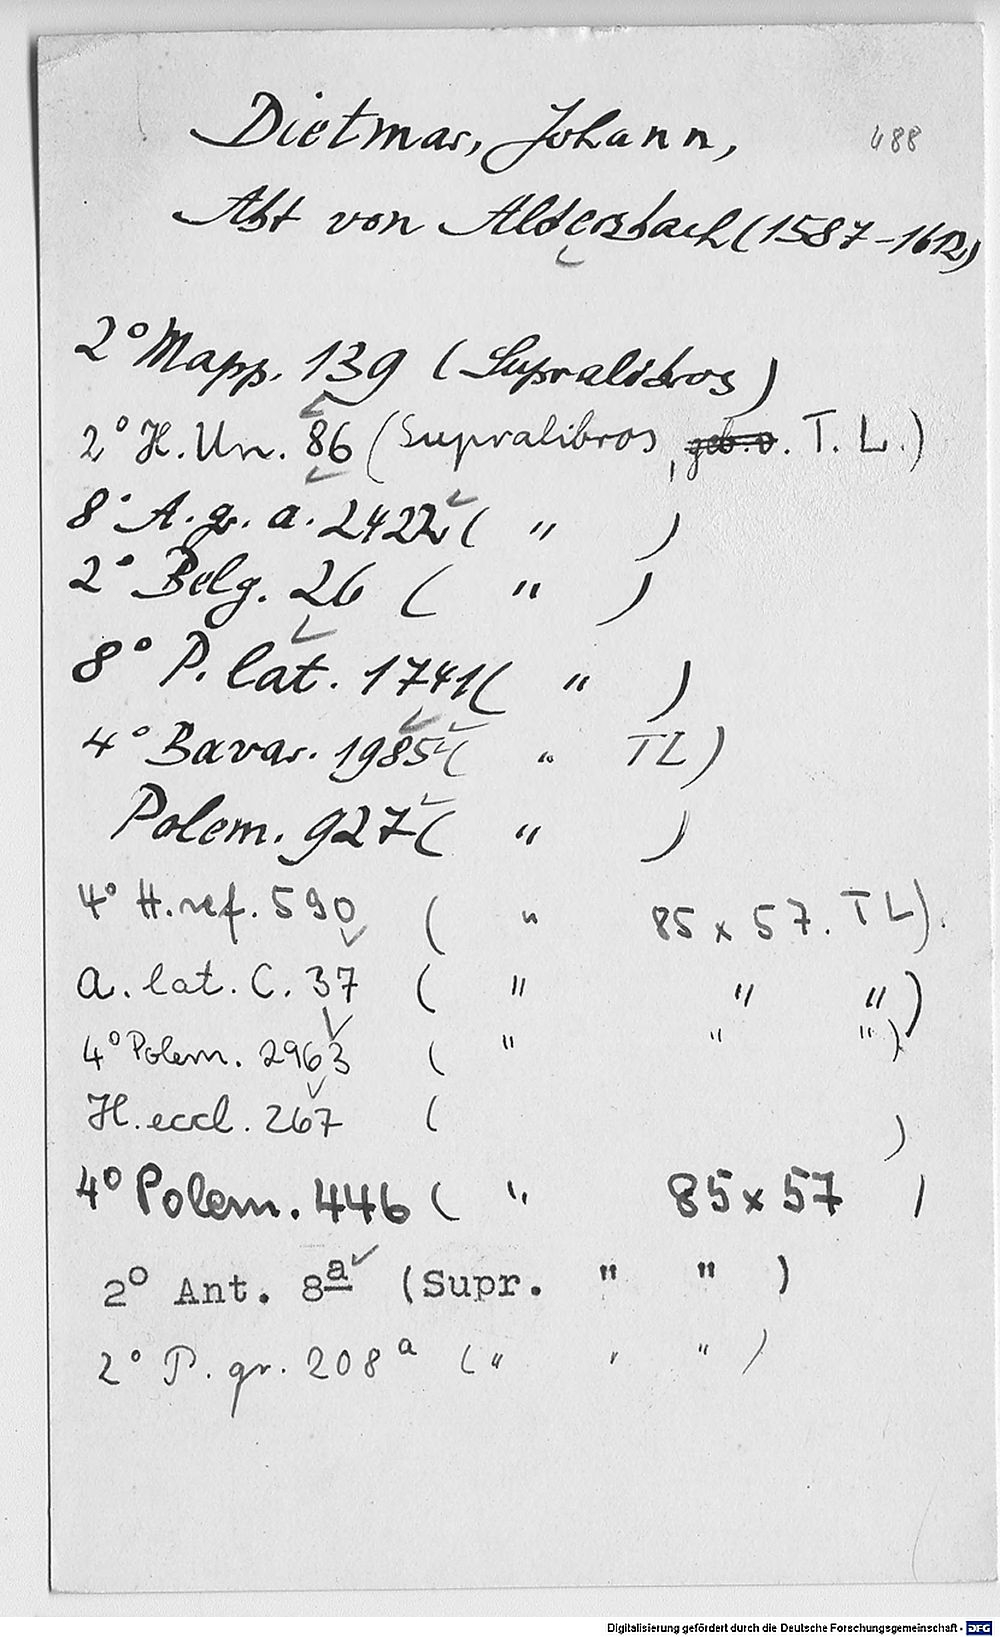 488
Dietmar, Johann,
Abt von Aldersbach (1587-1612)
2° Mapp. 139 (Supralibros)
2° H. Un. 86 (Supralibros, geb. v. T. L.)
8° A. gr. a. 2422 ( " )
2° Belg. 26 ( " )
8° P. lat. 1741 ( " )
4° Bavar. 1985 ( " TL)
Polem. 927 ( " )
4° H. ref. 590 ( " 85 x 57. TL).
A. lat. C. 37 ( " " " )
4° Polem. 2963 ( " " " )
H. eccl. 267 ( )
4° Polem. 446 ( " 85 x 57 )
2° Ant. 8a (Supr. " " )
2° P. gr. 208a ( " " " )
Digitalisierung gefördert durch die Deutsche Forschungsgemeinschaft - DFG